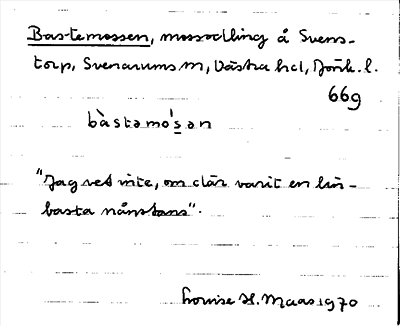 Bastemossen, mossodling å Svens-
torp, Svenarums sn, Västra hd, Jönk. l.
66g
bàstəmo'sən
"Jag vet inte, om där varit en lin-
basta nånstans".
Louise H. Maas 1970